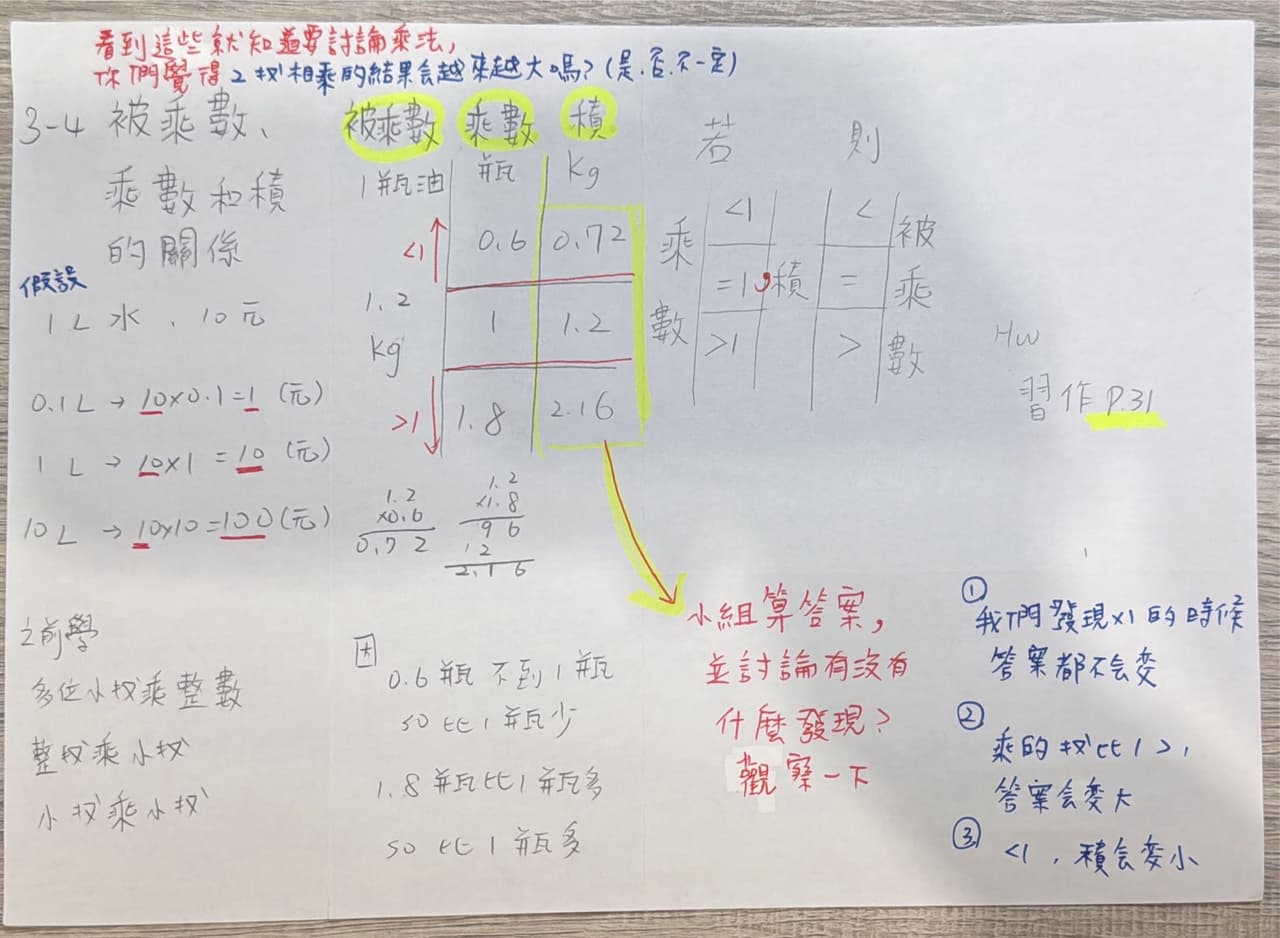 看到這些就知道要討論乘法，
你們覺得2权相乘的結果会越來越大嗎?(是.否.不一定)
3-4 被乘數、
乘數和積
的關係
假設
1L水，10元
0.1L → 10×0.1=1 (元)
1L → 10×1=10 (元)
10L → 10×10=100(元)
之前學
多位小权乘整數
整权乘小权
小权乘小权
被乘數 乘數 積
1瓶油 瓶 kg
<1 0.6 0.72
1.2
kg
1 1.2
>1 1.8 2.16
1.2
×0.6
0.72
1.2
×1.8
96
12
2.16
因
0.6瓶不到1瓶
so比1瓶少
1.8瓶比1瓶多
so比1瓶多
若 則
乘數
<1 <
=1，積 =
>1 >
被乘數
HW
習作 P.31
小組算答案，
並討論有沒有
什麼發現？
觀察一下
①
我們發現×1的時候
答案都不会变
②
乘的权比1>，
答案会变大
③
<1，積会变小